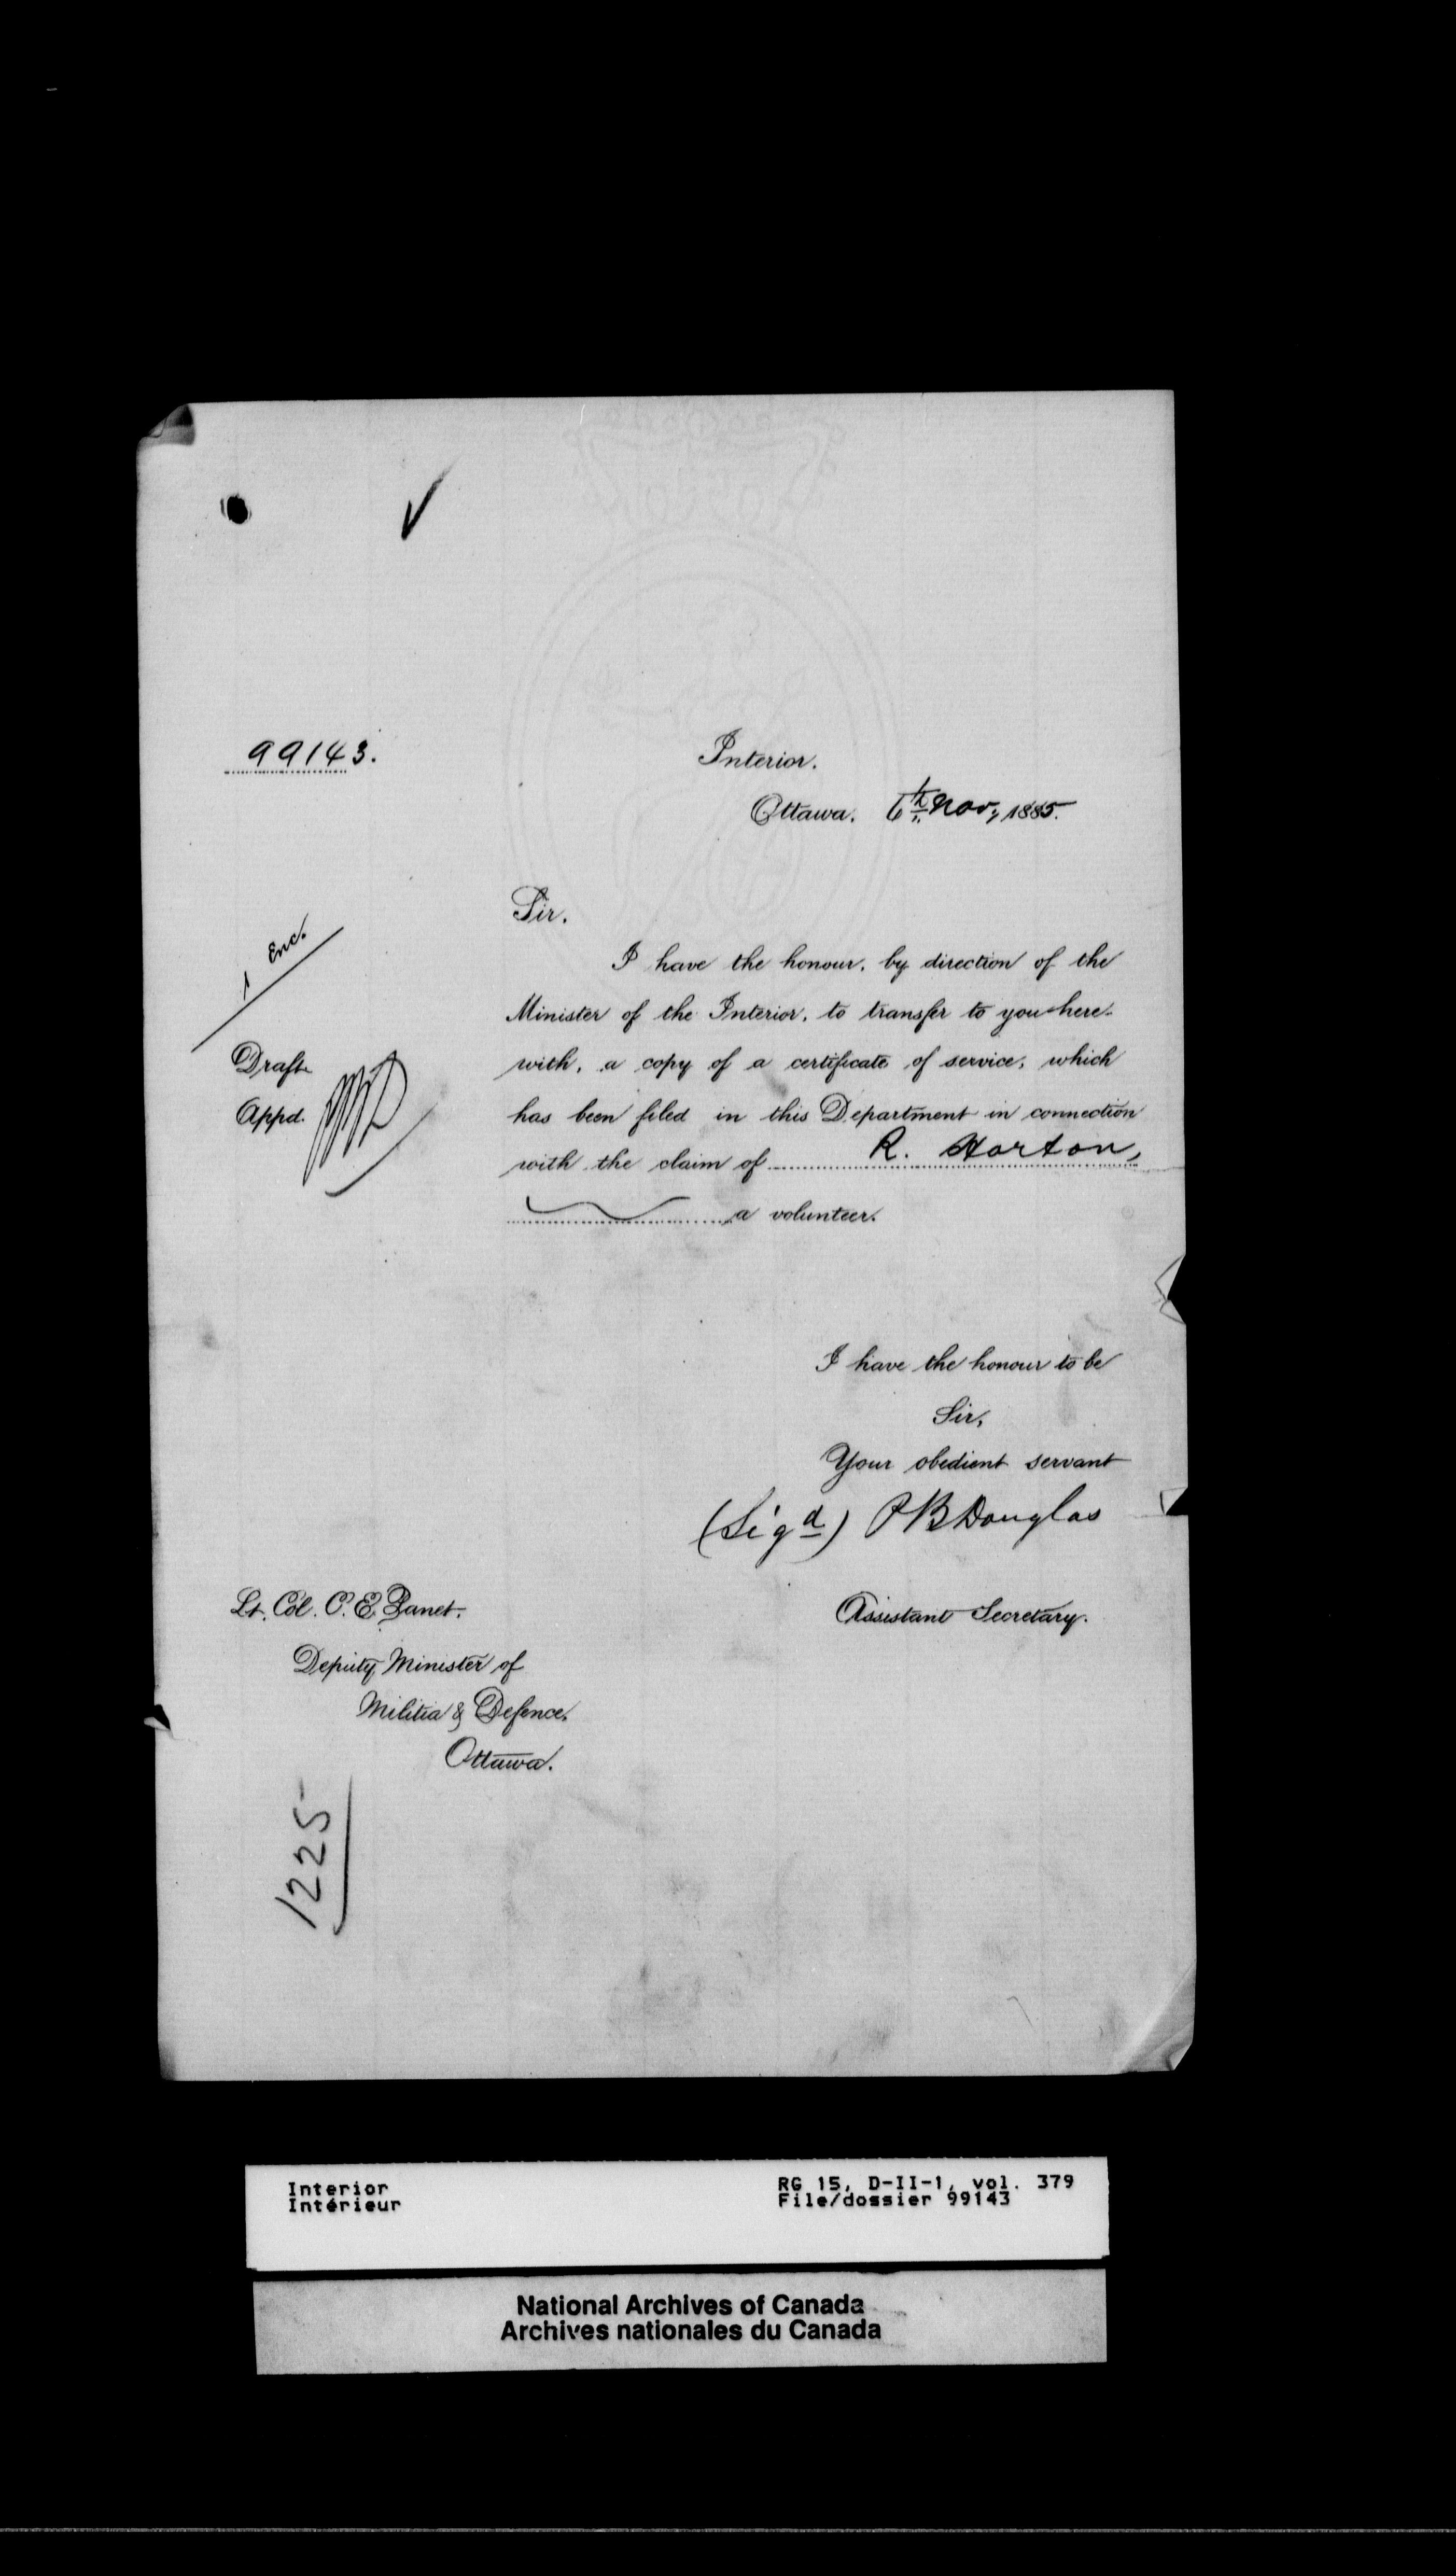 99143.
Interior.
Ottawa. 6th Nov, 1885.
1 Enc.
Sir.
I have the honour, by direction of the
Minister of the Interior, to transfer to you here-
Draft
with, a copy of a certificate of service, which
Appd.
has been filed in this Department in connection
with the claim of R. Horton,
a volunteer.
I have the honour to be
Sir,
Your obedient servant
(Sigd) P B Douglas
Assistant Secretary.
Lt. Col. C. E. Panet.
Deputy Minister of
Militia & Defence,
Ottawa.
1225
Interior
Intérieur
RG 15, D-II-1, vol. 379
File/dossier 99143
National Archives of Canada
Archives nationales du Canada